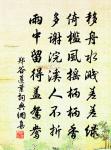 移舟水濺差差綠
倚檻風搖柄柄香
多謝浣溪人不折
雨中留得蓋鴛鴦
鄭谷蓮葉詞典網書